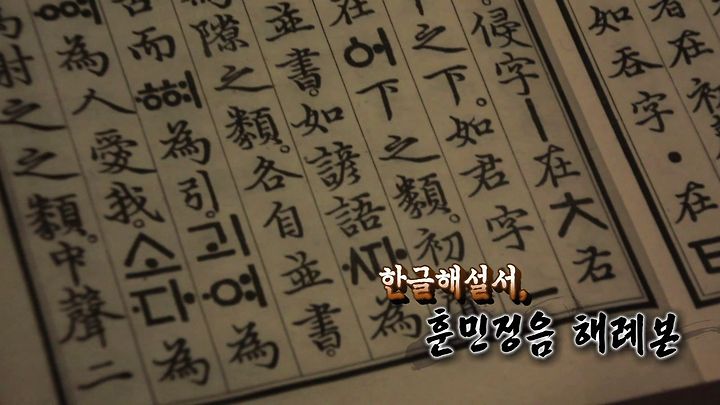 者在初
如呑字・在ㅌ
侵字ㅣ在ㅊ右
之下。如君字
在어下之類。初
並書。如諺語ᄯᅡ為
為隙之類。各自並書
舌而ᅘᅧ為引。괴여為
ᅇᅧ為人愛我。소다為
為射之之類。中聲二
한글해설서,
훈민정음 해례본